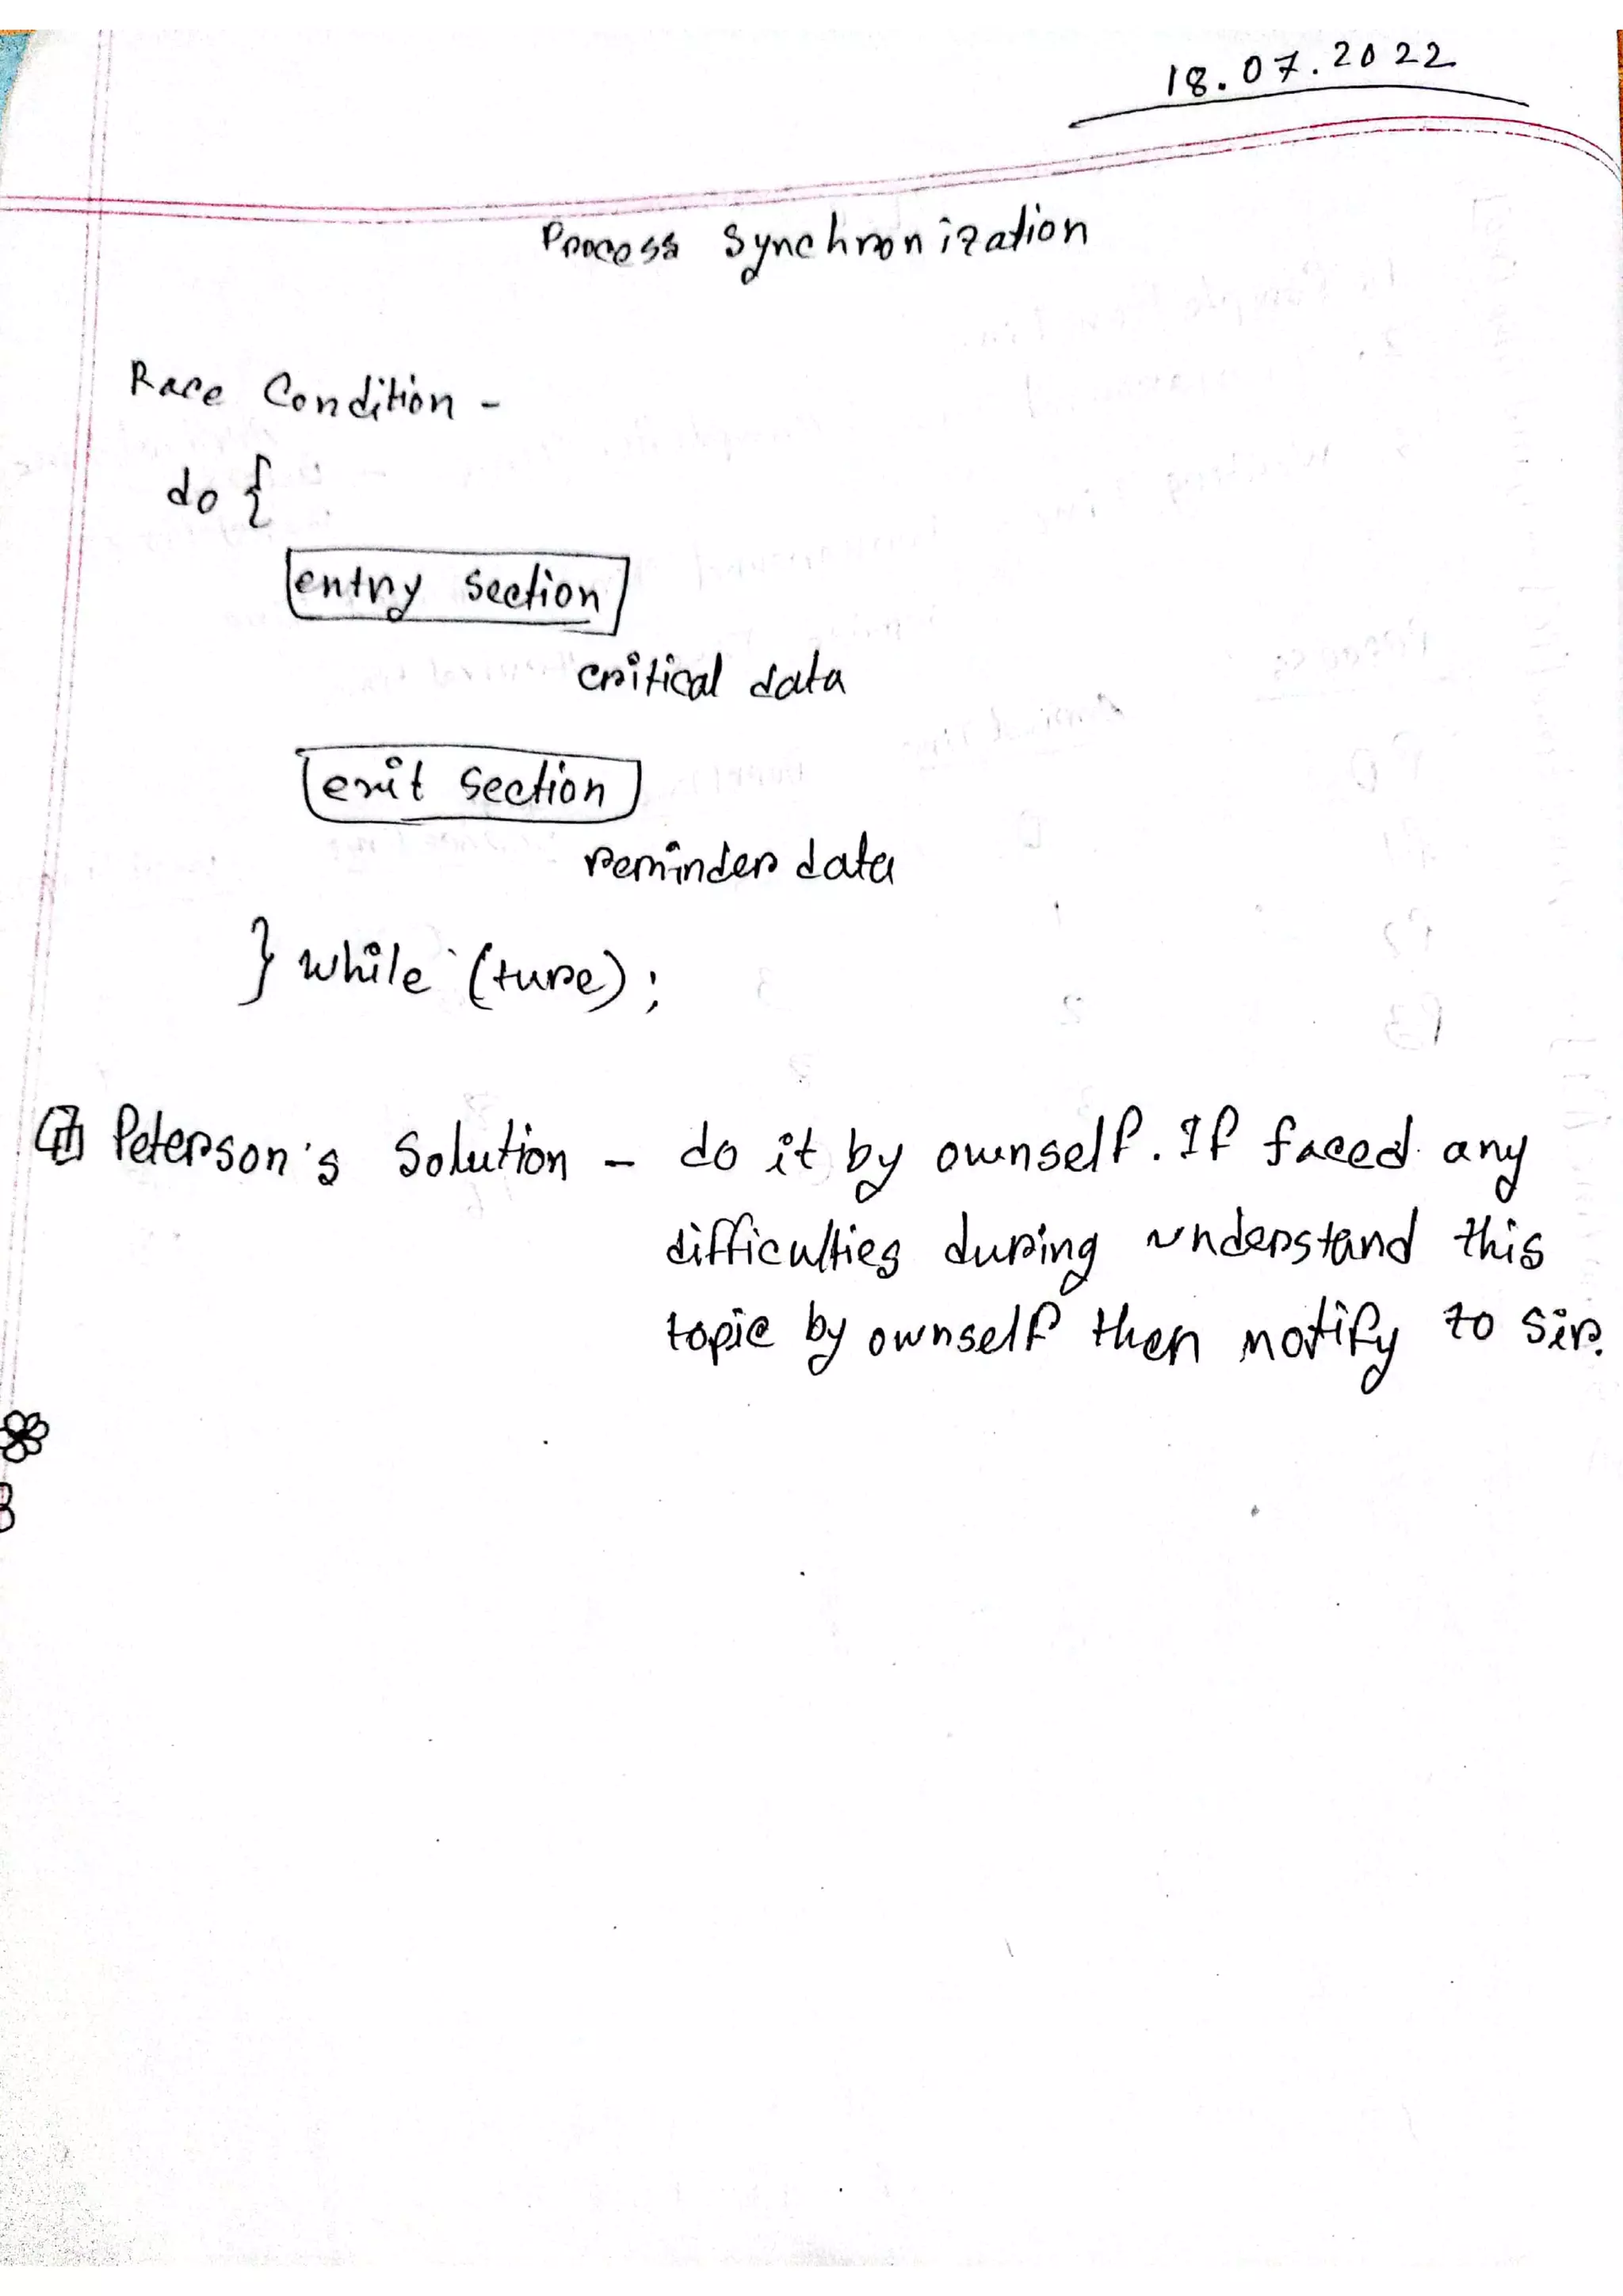 18.07.2022
Process Synchronization
Race Condition -
do {
entry section
critical data
exit section
reminder data
} while (ture);
Peterson's Solution - do it by ownself. If faced any
difficulties during understand this
topic by ownself then notify to sir.